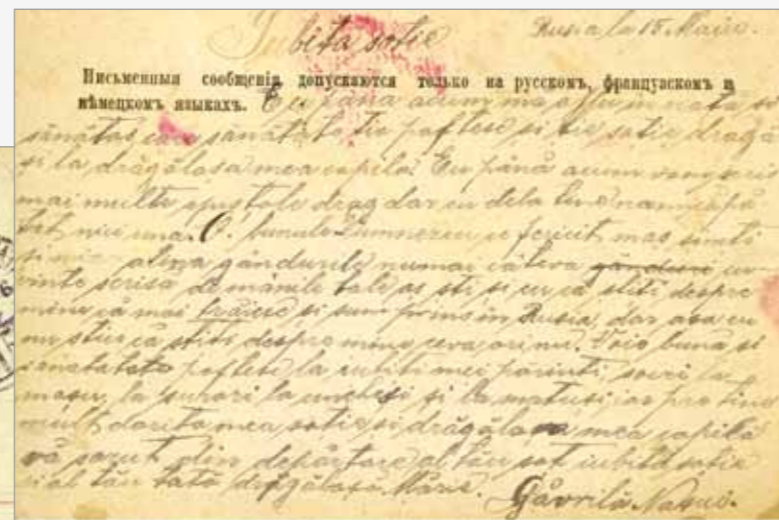 Iubita sotie Rusia la 15 Maiu.
Письменныя сообщенія допускаются только на русскомъ, французскомъ и
нѣмецкомъ языкахъ. Eu pana acum ma aflu in viata si
sănătos care sanatate tie poftesc si tie sotie draga
si la drăgălasa mea copila. Eu până acum am scris
mai multe epistole drag dar eu dela tine nam căpă
tat nici una. O! bunule Dumnezeu ce fericit mas simti
gândurile numai câteva gânduri cu
vinte scrise de mânile tale as sti si eu că stiti despre
mine că mai trăiesc si sunt prins in Rusia, dar asa eu
nu stiu că stiti despre mine ceva ori nu. Voie bună si
sănătate poftesc la iubitii mei părinti, socri la
la surori la unchesi si la matusi, iar pre tine
mult dorita mea sotie si drăgălasa mea copilă
vă sărut din depărtare al tău sot iubită sotie
si al tău tată drăgălasă Mărie. Găvrilă